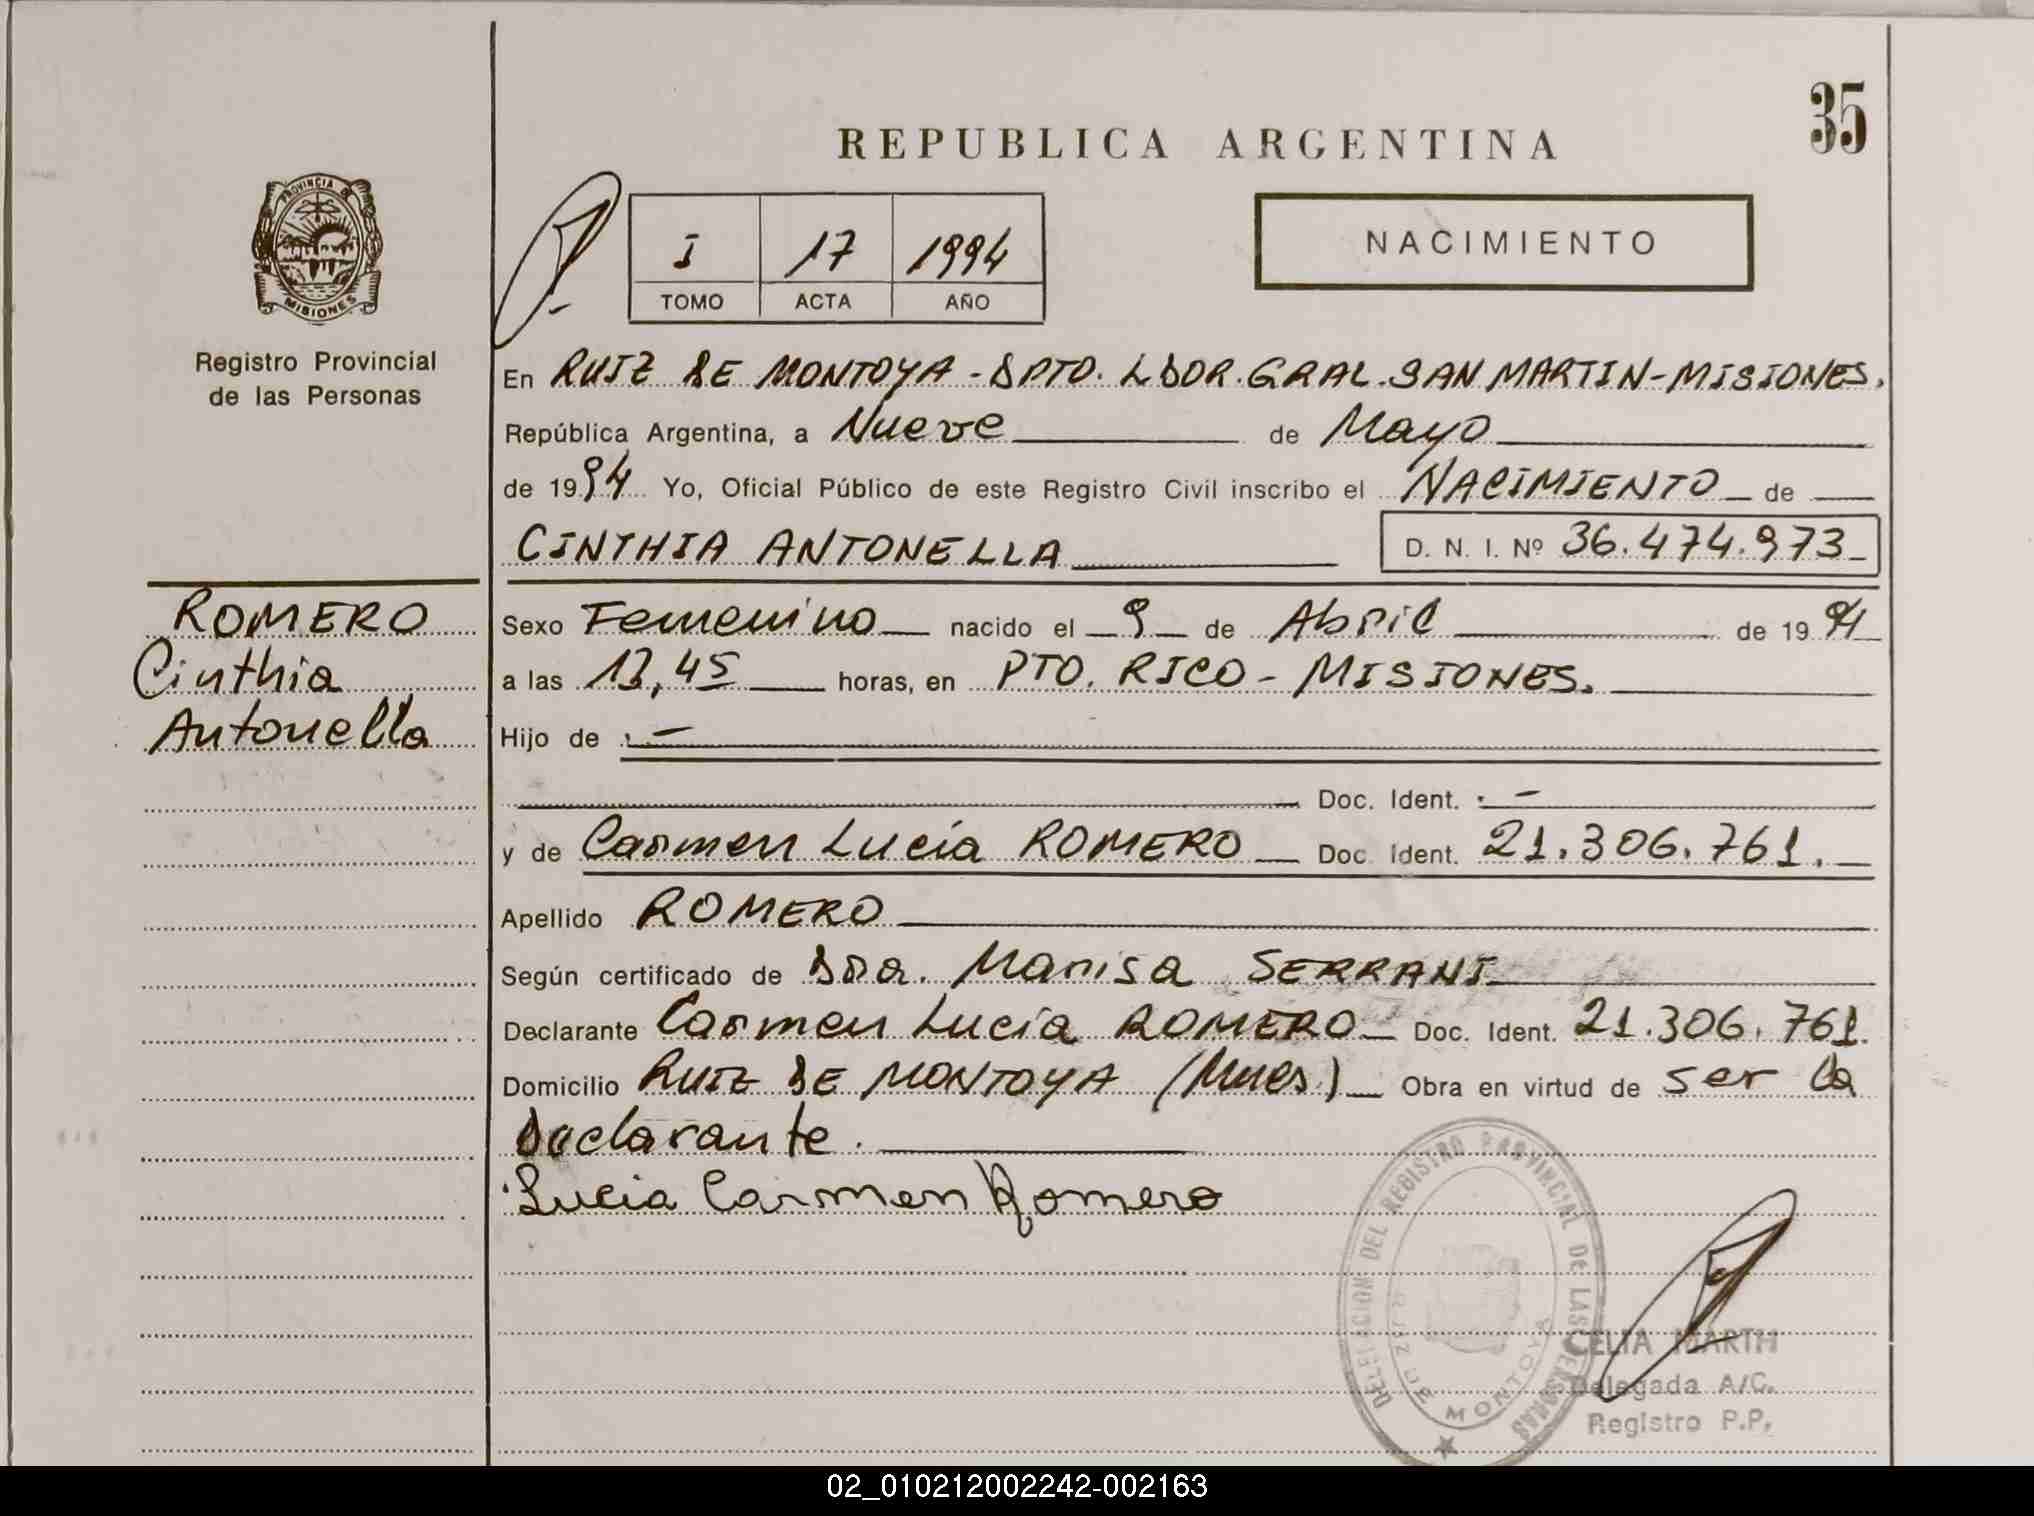 35
REPUBLICA ARGENTINA
PROVINCIA DE
MISIONES
I 17 1994
TOMO ACTA AÑO
NACIMIENTO
Registro Provincial
de las Personas
En RUIZ DE MONTOYA - DPTO. LDOR. GRAL. SAN MARTIN - MISIONES.
República Argentina, a Nueve de Mayo
de 1994 Yo, Oficial Público de este Registro Civil inscribo el NACIMIENTO de
CINTHIA ANTONELLA D. N. I. Nº 36.474.973
ROMERO
Cinthia
Antonella
Sexo Femenino nacido el 9 de Abril de 1994
a las 13,45 horas, en PTO. RICO - MISIONES.
Hijo de . -
Doc. Ident. . -
y de Carmen Lucía ROMERO Doc. Ident. 21.306.761.
Apellido ROMERO
Según certificado de Dra. Marisa SERRANI
Declarante Carmen Lucía ROMERO Doc. Ident. 21.306.761.
Domicilio RUIZ DE MONTOYA (Mnes.) Obra en virtud de ser la
Declarante.
Lucia Carmen Romero
DELEGACION DEL REGISTRO PROVINCIAL DE LAS PERSONAS
RUIZ DE MONTOYA
CELIA MARTH
Delegada A/C.
Registro P.P.
02_010212002242-002163